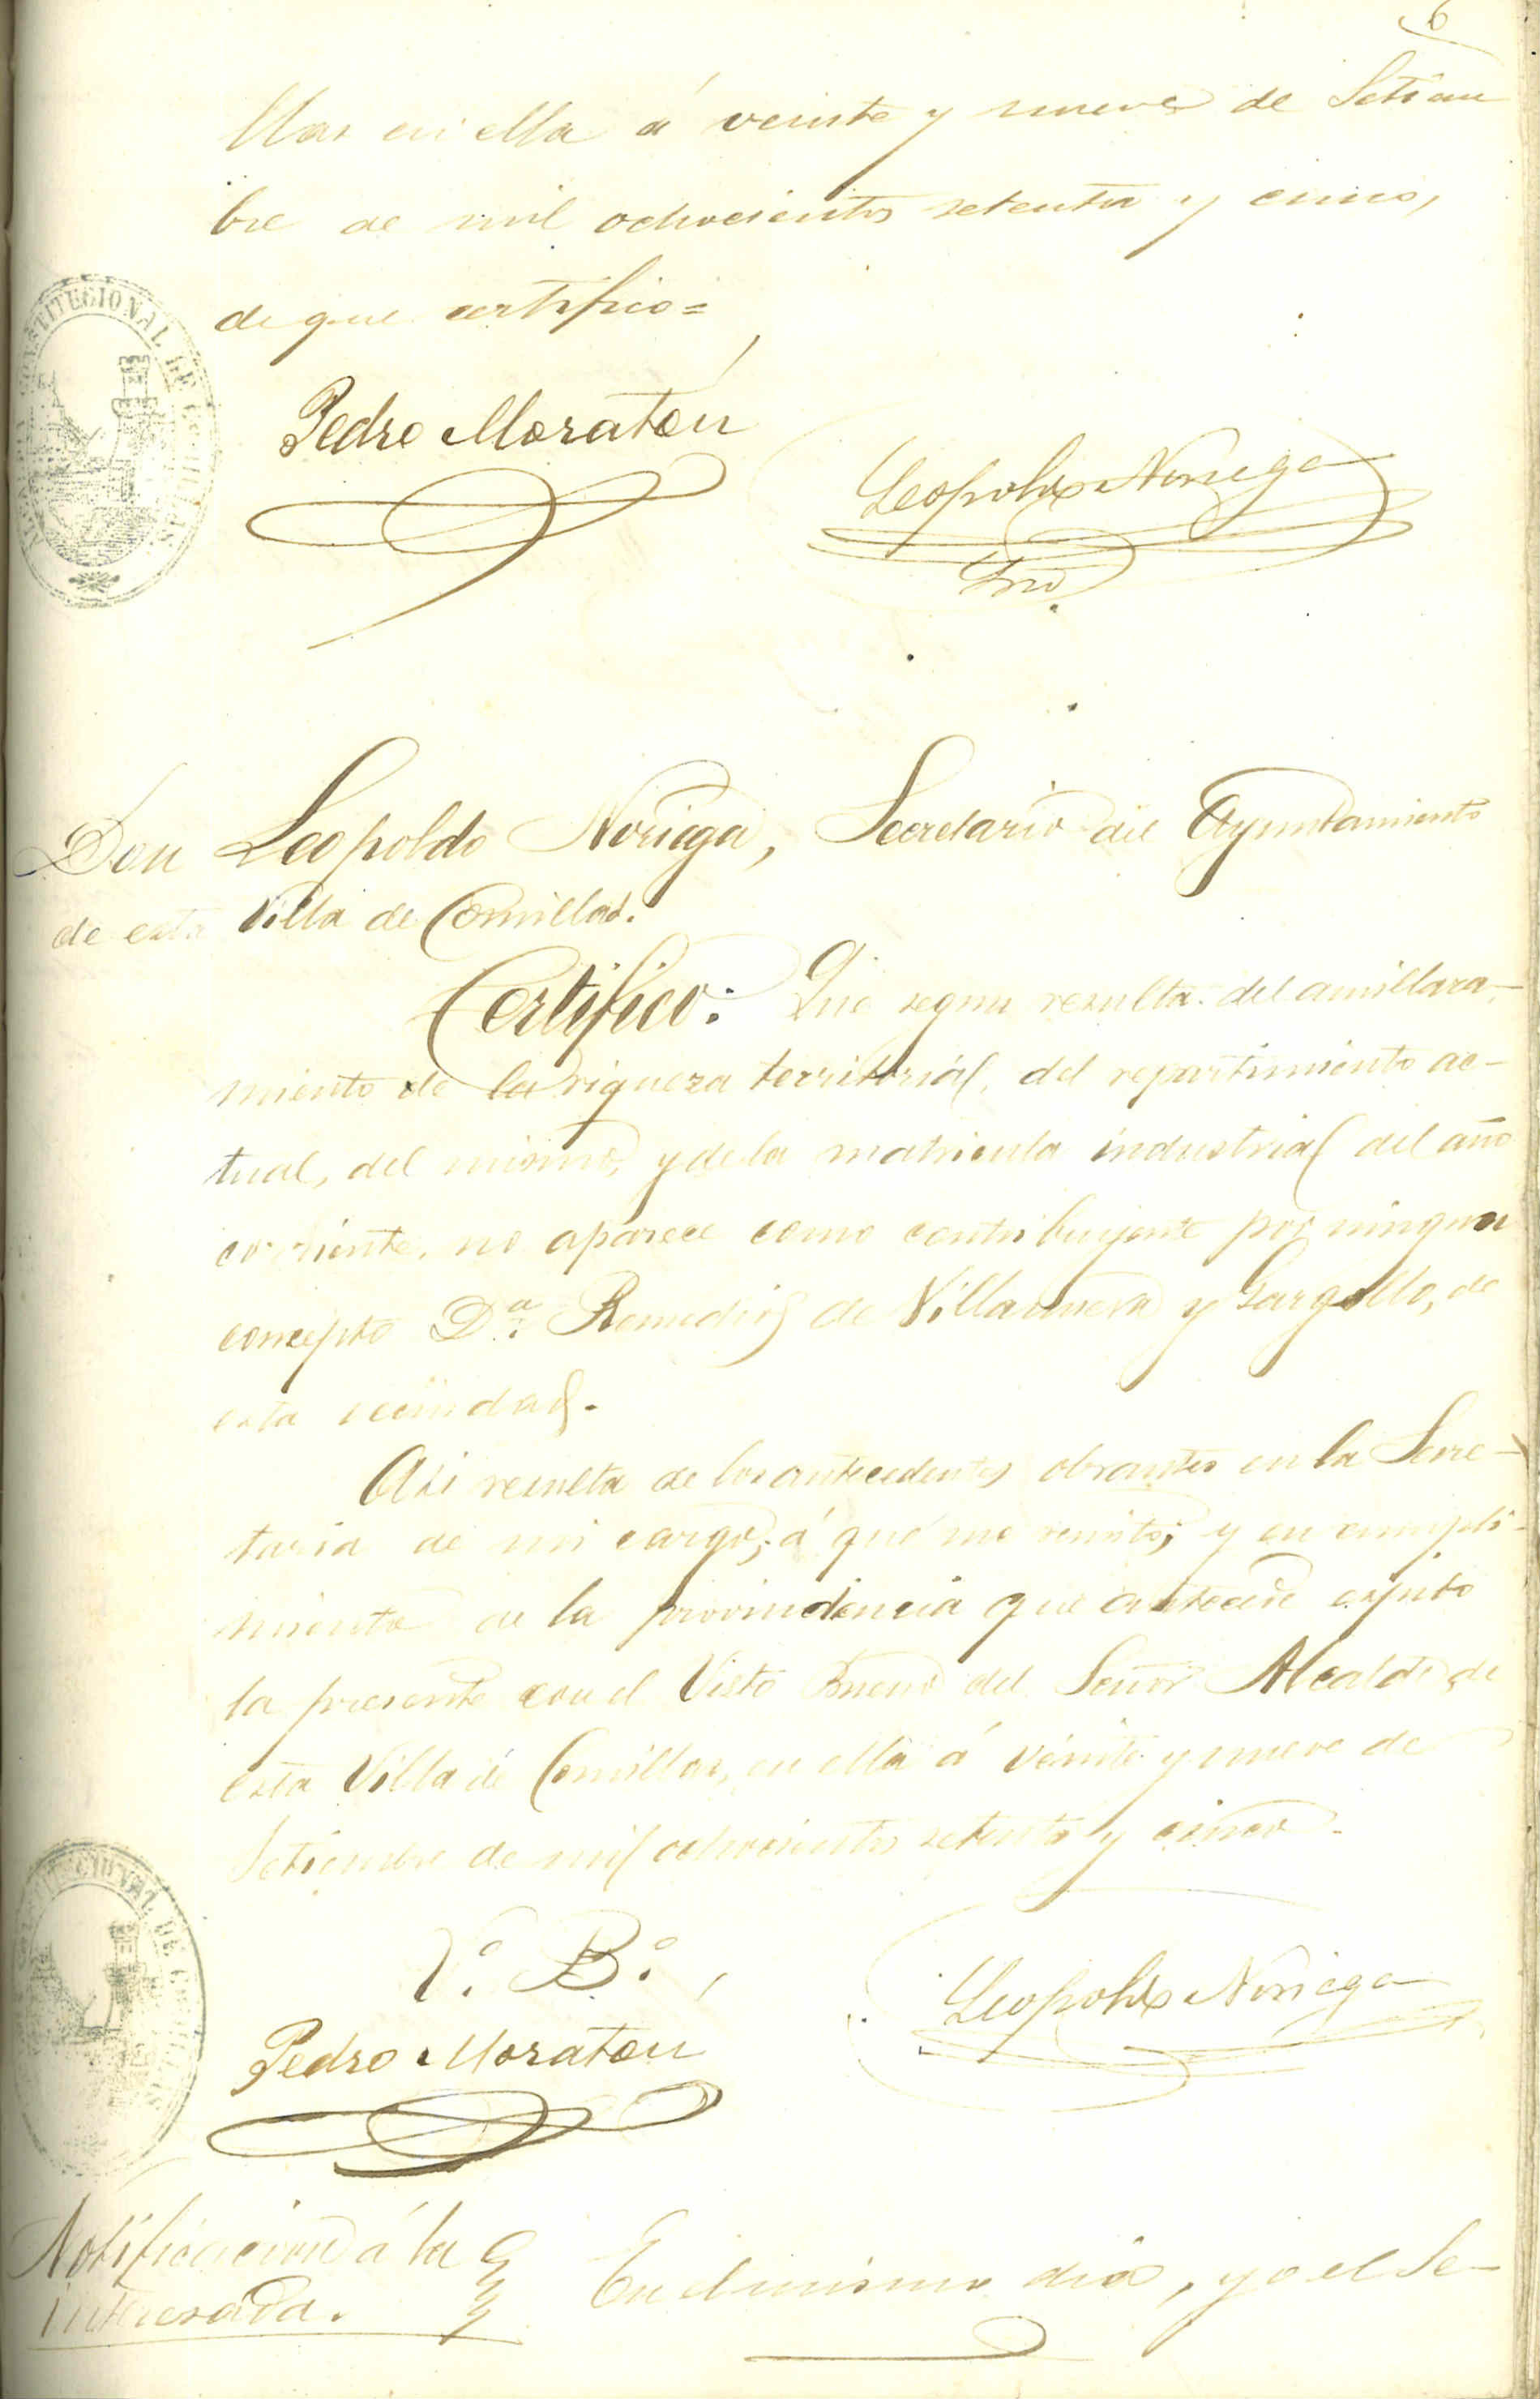 6
llas en ella á veinte y nueve de Setiem
bre de mil ochocientos setenta y cinco,
de que certifico=
CONSTITUCIONAL DE COMILLAS
Pedro Moratón
Leopoldo Noriega
Srio
Don Leopoldo Noriega, Secretario del Ayuntamiento
de esta Villa de Comillas.
Certifico: Que segun resulta del amillara-
miento de la riqueza territorial, del repartimiento ac-
tual, del mismo, y de la matricula industrial del año
corriente, no aparece como contribuyente por ningun
concepto D.ª Remedios de Villanueva y Gargollo, de
esta vecindad.
Asi resulta de los antecedentes obrantes en la Secre-
taria de mi cargo, á que me remito; y en cumpli-
miento de la providencia que antecede espido
la presente con el Visto Bueno del Señor Alcalde de
esta Villa de Comillas, en ella á veinte y nueve de
Setiembre de mil ochocientos setenta y cinco.
CONSTITUCIONAL DE COMILLAS
V.º B.º
Leopoldo Noriega
Pedro Moratón
Notificacion á la
interesada.
En el mismo dia, yo el Se-